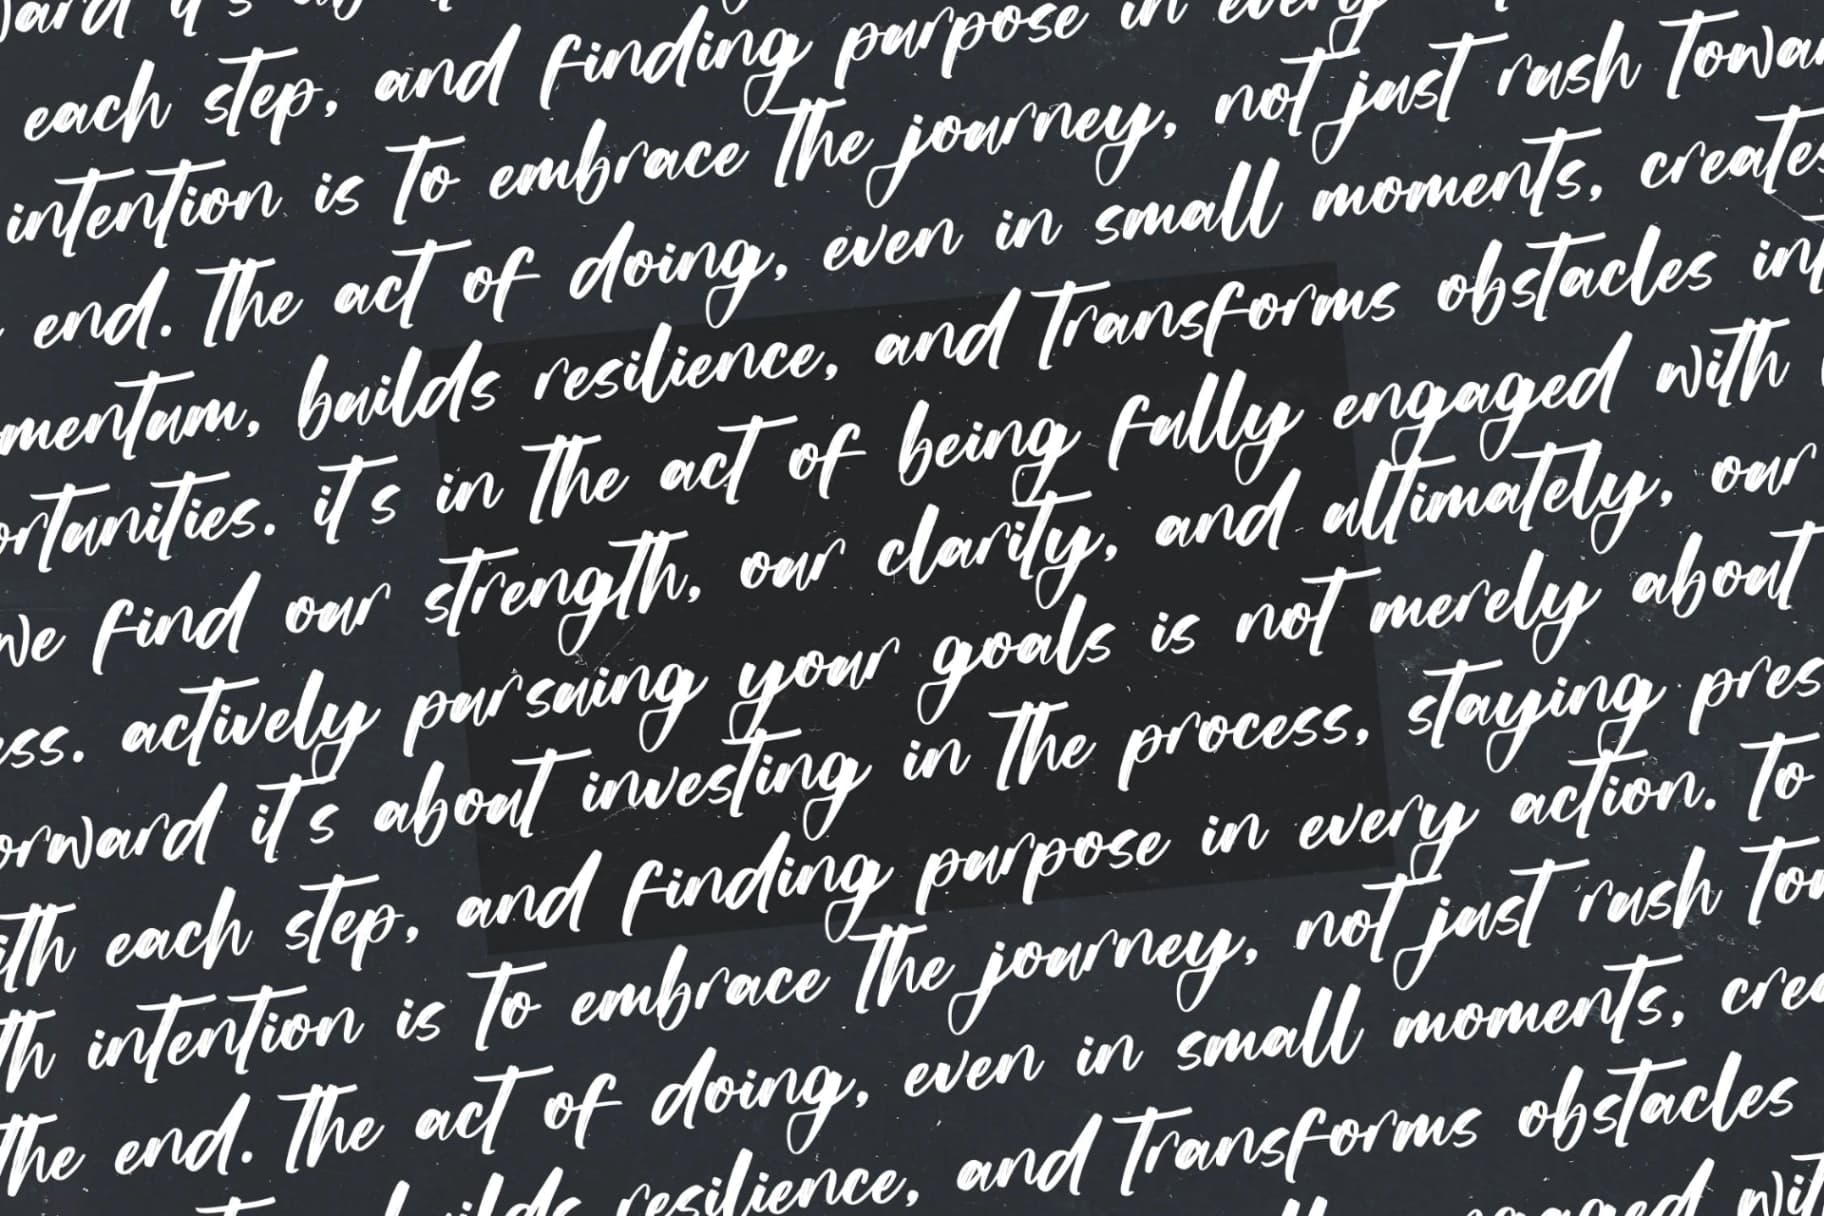 ward it's about
each step, and finding purpose in every
intention is to embrace the journey, not just rush towar
end. the act of doing, even in small moments, creates
mentum, builds resilience, and transforms obstacles int
ortunities. it's in the act of being fully engaged with
we find our strength, our clarity, and ultimately, our
ess. actively pursuing your goals is not merely about
orward it's about investing in the process, staying pres
ith each step, and finding purpose in every action. to
th intention is to embrace the journey, not just rush tow
the end. the act of doing, even in small moments, crea
builds resilience, and transforms obstacles
engaged wit